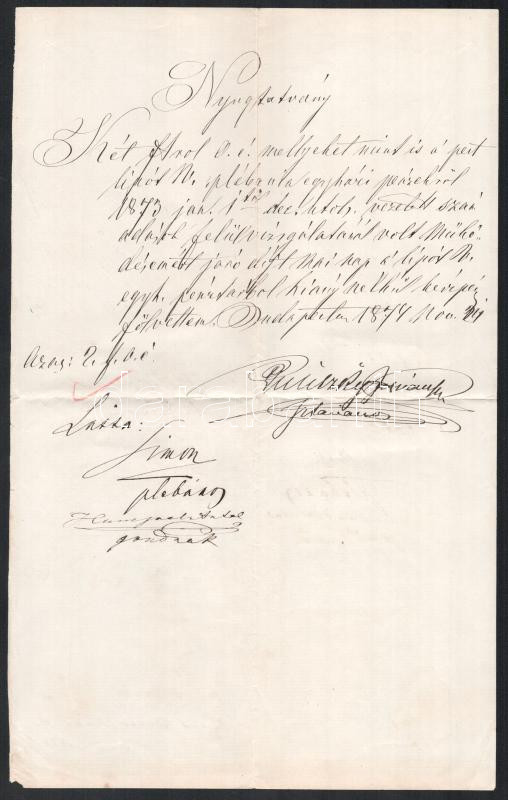 Nyugtatvány
Két frtrol o. é. mellyeket mint is a pest
lipót v. plebánia egyházi pénzekröl
1873 jan. 1től dec. utols. vezetett szám
adások felülvizsgálatáról volt Mükö-
désemért járó díjt mai nap a lipót v.
egyh. pénztárból hiány nélkül kezemhez
fölvettem. Budapesten 1874 Nov. 24
Azaz: 2 f. o. é.
István
Látta:
Simon
plebános
Antal
gondnok